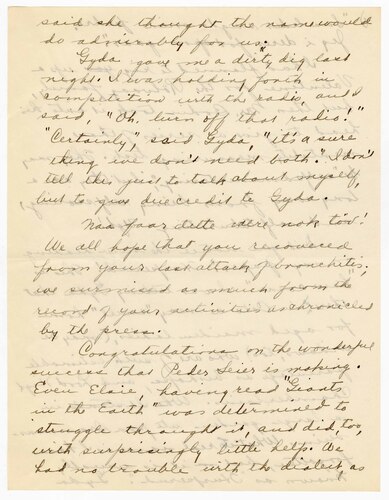 said she thought the name would
do admirably for us."
Gyda gave me a dirty dig last
night. I was holding forth in
competition with the radio, and I
said, "Oh, turn off that radio."
"Certainly", said Gyda, "it's a sure
thing we don't need both." I don't
tell this just to talk about myself,
but to give due credit to Gyda.
Naa faar dette være nok töv!
We all hope that you recovered
from your last attack of bronchitis;
we surmised as much from the
record of your activities as chronicled
by the press.
Congratulations on the wonderful
success that Peder Seier is making.
Even Elsie, having read "Giants
in the Earth" was determined to
struggle through it, and did, too,
with surprisingly little help. We
had no trouble with the dialect, as